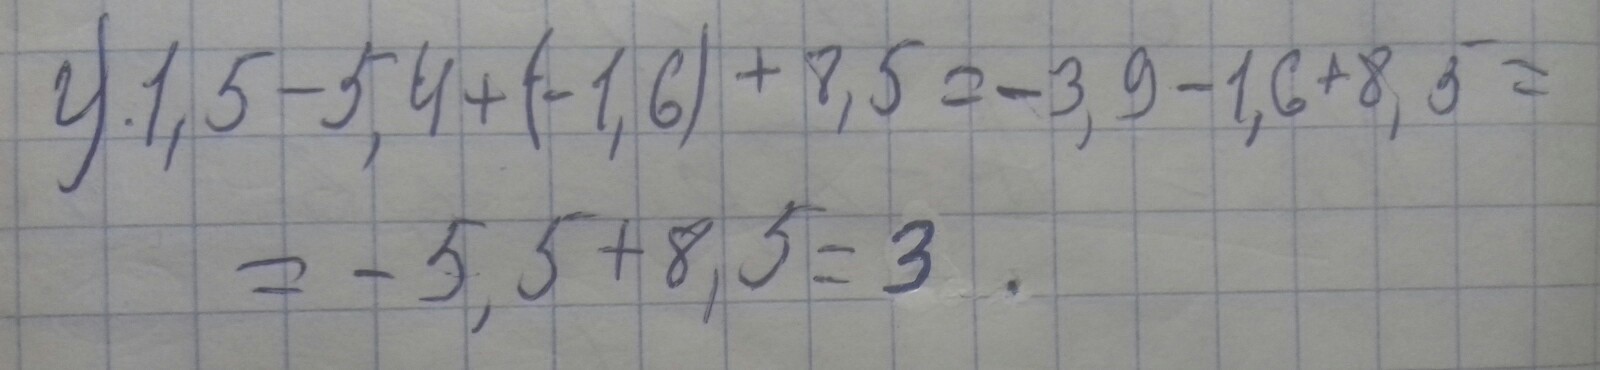 4) 1,5-5,4+(-1,6)+8,5=-3,9-1,6+8,5=
=-5,5+8,5=3.